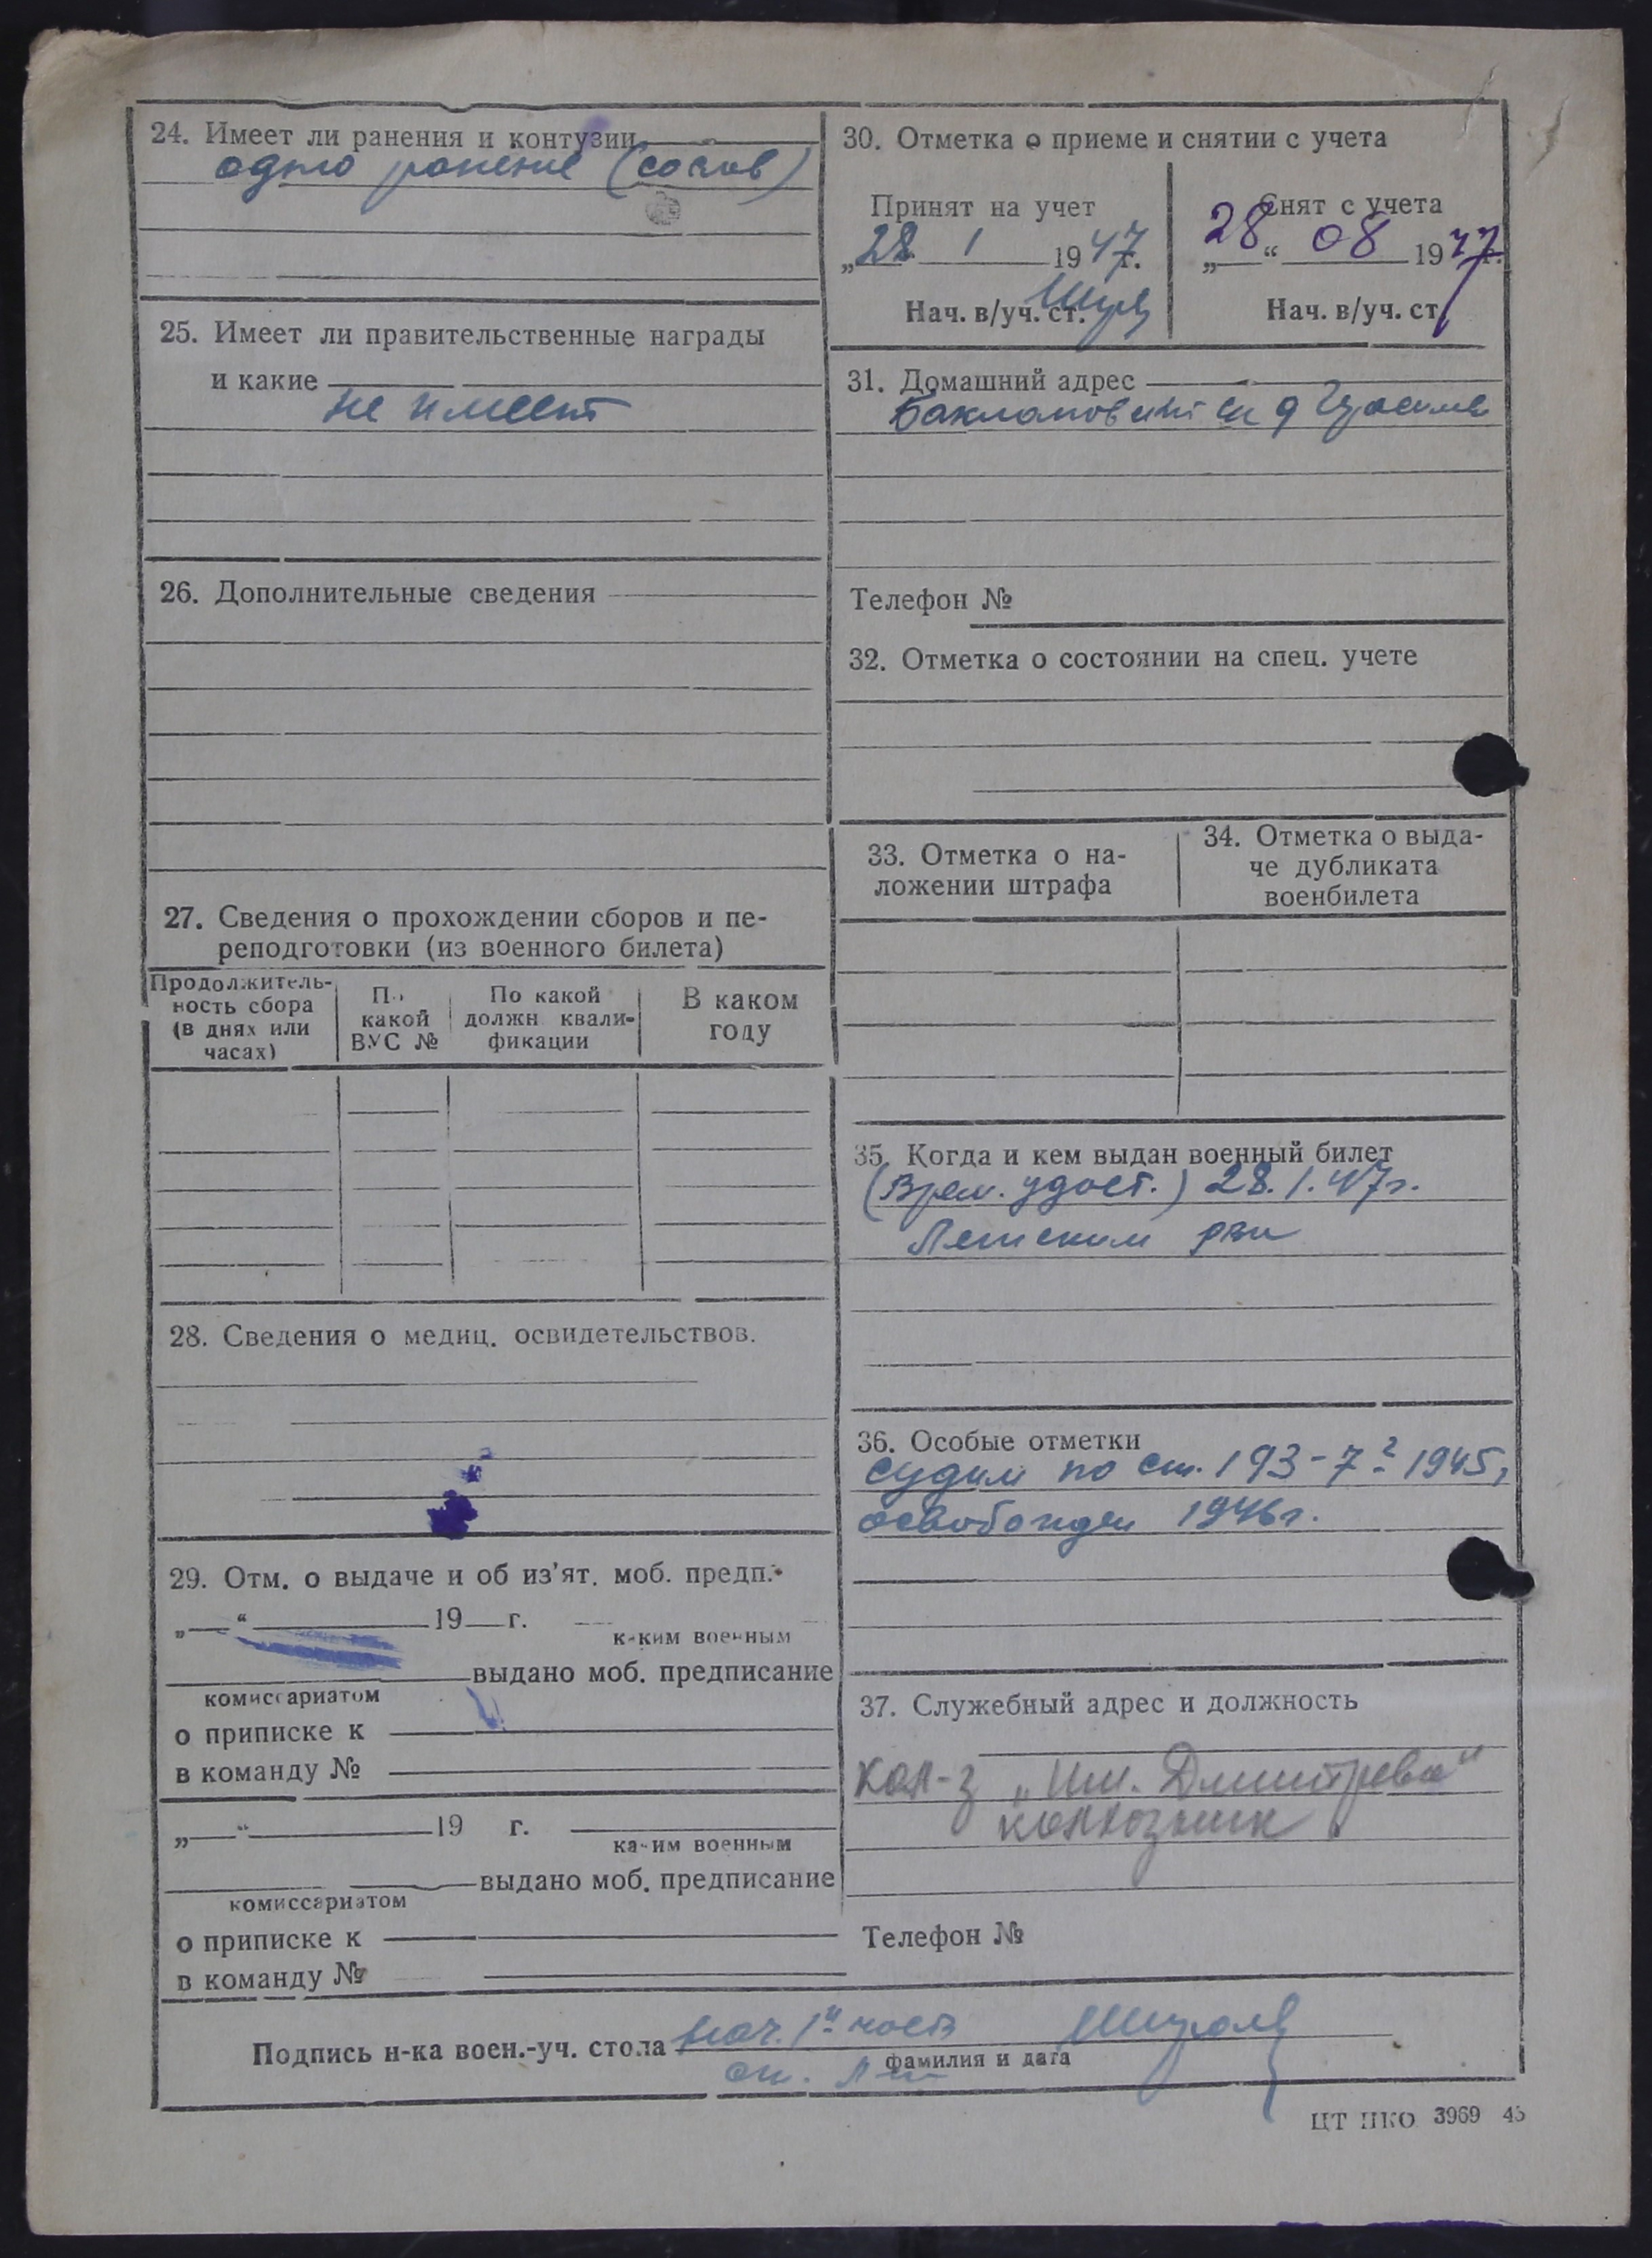 24. Имеет ли ранения и контузии
одно ранение
25. Имеет ли правительственные награды
и какие
не имеет
26. Дополнительные сведения
27. Сведения о прохождении сборов и пе-
реподготовки (из военного билета)
Продолжитель-
ность сбора
(в днях или
часах)
По
какой
ВУС №
По какой
должн квали-
фикации
В каком
году
28. Сведения о медиц. освидетельствов.
29. Отм. о выдаче и об из'ят. моб. предп.
„ “ 19 г.
каким военным
выдано моб. предписание
комиссариатом
о приписке к
в команду №
„ “ 19 г.
каким военным
выдано моб. предписание
комиссариатом
о приписке к
в команду №
30. Отметка о приеме и снятии с учета
Принят на учет
„28 1 1947г.
Нач. в/уч. ст.
Снят с учета
„28“ 08 1977г.
Нач. в/уч. ст.
31. Домашний адрес
Телефон №
32. Отметка о состоянии на спец. учете
33. Отметка о на-
ложении штрафа
34. Отметка о выда-
че дубликата
военбилета
35. Когда и кем выдан военный билет
(Врем. удост.) 28.1.47г.
Летским рвк
36. Особые отметки
судим по ст. 193-7 1945,
освобожден 1946г.
37. Служебный адрес и должность
кол-з „Им. Димитрова“
колхозник
Телефон №
Подпись н-ка воен.-уч. стола нач. 1й части
фамилия и дата
ЦТ НКО 3969 45